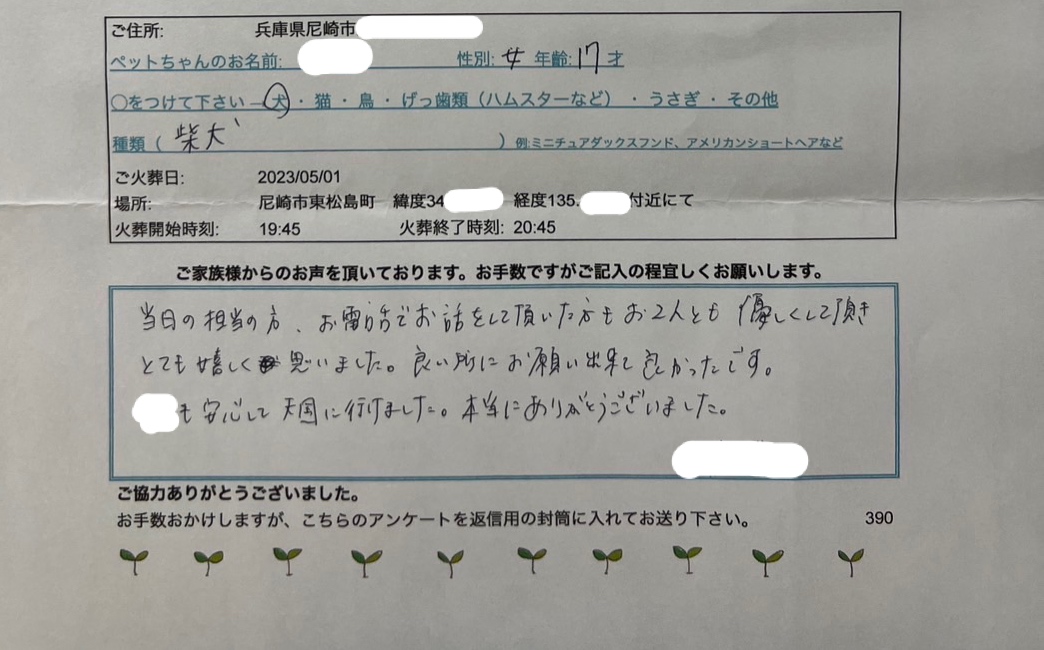 ご住所: 兵庫県尼崎市
ペットちゃんのお名前: 性別: 女 年齢: 17 才
○をつけて下さい―犬・猫・鳥・げっ歯類（ハムスターなど）・うさぎ・その他
種類（ 柴犬 ）例:ミニチュアダックスフンド、アメリカンショートヘアなど
ご火葬日: 2023/05/01
場所: 尼崎市東松島町 緯度34 経度135. 付近にて
火葬開始時刻: 19:45 火葬終了時刻: 20:45
ご家族様からのお声を頂いております。お手数ですがご記入の程宜しくお願いします。
当日の担当の方、お電話でお話をして頂いた方もお2人とも優しくして頂き
とても嬉しく思いました。良い所にお願い出来て良かったです。
も安心して天国に行けました。本当にありがとうございました。
ご協力ありがとうございました。
お手数おかけしますが、こちらのアンケートを返信用の封筒に入れてお送り下さい。 390